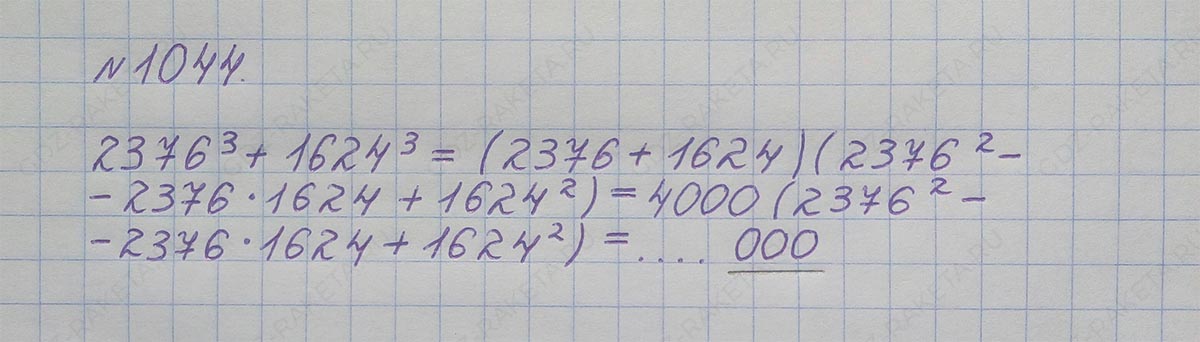 № 1044.
2376³ + 1624³ = (2376 + 1624)(2376² –
– 2376 · 1624 + 1624²) = 4000 (2376² –
– 2376 · 1624 + 1624²) = .... 000